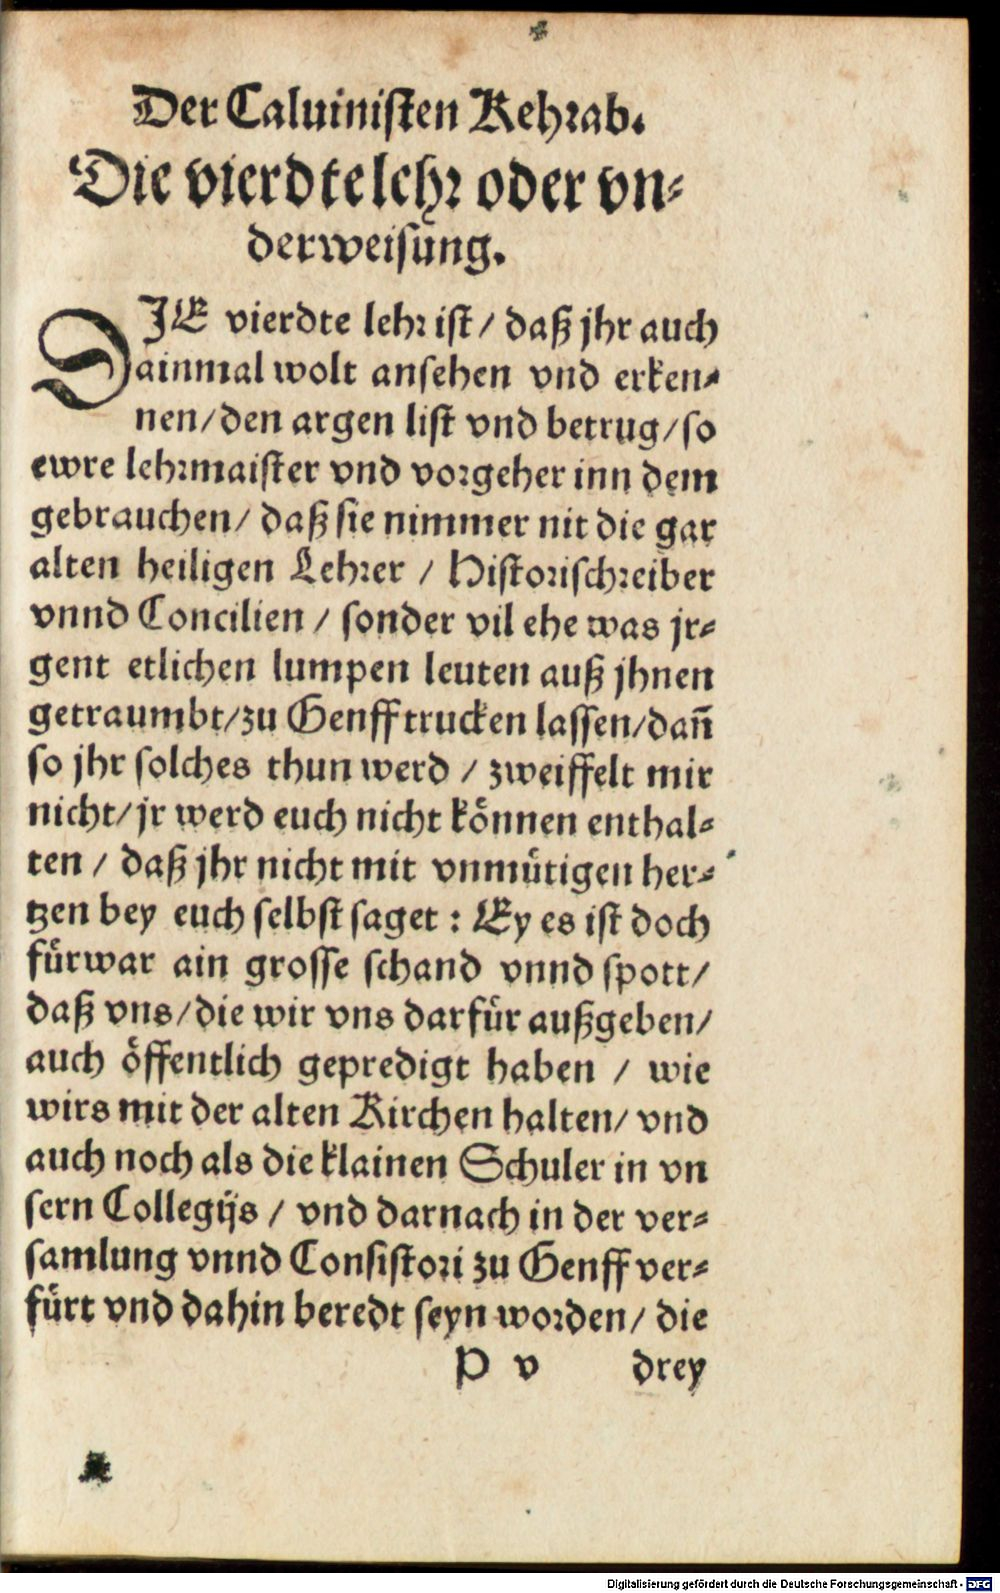 Der Caluinisten Kehrab.
Die vierdte lehr oder vn⸗
derweisung.
DJE vierdte lehr ist / daß jhr auch
ainmal wolt ansehen vnd erken⸗
nen/den argen list vnd betrug/so
ewre lehrmaister vnd vorgeher inn dem
gebrauchen/ daß sie nimmer nit die gar
alten heiligen Lehrer / Historischreiber
vnnd Concilien / sonder vil ehe was jr⸗
gent etlichen lumpen leuten auß jhnen
getraumbt/zu Genff trucken lassen/dañ
so jhr solches thun werd / zweiffelt mir
nicht/jr werd euch nicht koͤnnen enthal⸗
ten / daß jhr nicht mit vnmuͤtigen her⸗
tzen bey euch selbst saget : Ey es ist doch
fuͤrwar ain grosse schand vnnd spott/
daß vns/die wir vns darfuͤr außgeben/
auch oͤffentlich gepredigt haben / wie
wirs mit der alten Kirchen halten/ vnd
auch noch als die klainen Schuler in vn
sern Collegijs / vnd darnach in der ver⸗
samlung vnnd Consistori zu Genff ver⸗
fuͤrt vnd dahin beredt seyn worden/ die
P v drey
Digitalisierung gefördert durch die Deutsche Forschungsgemeinschaft - DFG